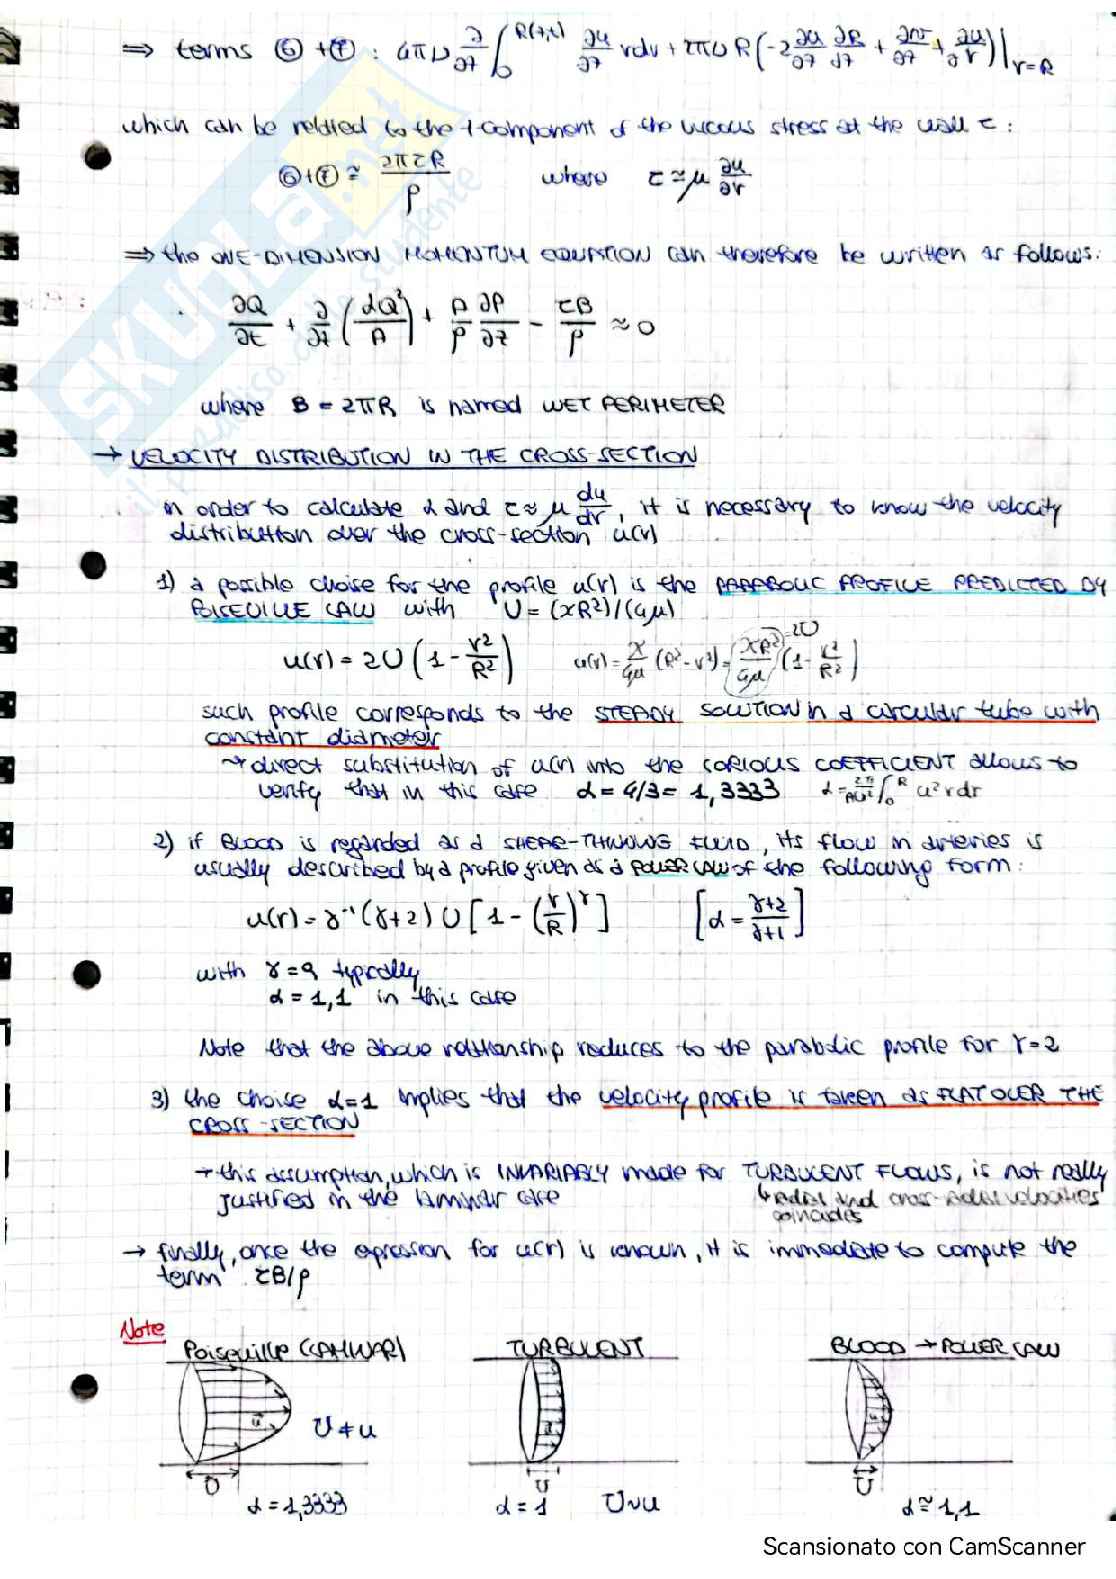 ⇒ terms ⑥ + ⑦ : 4πν ∂/∂z ∫₀^R(z,t) ∂u/∂z r dr + 2πν R (-2 ∂u/∂z ∂R/∂z + ∂v/∂z + ∂u/∂r)|r=R
which can be related to the z component of the viscous stress at the wall τ :
⑥+⑦ ≅ 2πτR/ρ where τ ≈ μ ∂u/∂r
⇒ the ONE-DIMENSION MOMENTUM EQUATION can therefore be written as follows:
∂Q/∂t + ∂/∂z (αQ²/A) + A/ρ ∂P/∂z - τB/ρ ≈ 0
where B = 2πR is named WET PERIMETER
→ VELOCITY DISTRIBUTION IN THE CROSS-SECTION
in order to calculate α and τ ≈ μ du/dr, it is necessary to know the velocity
distribution over the cross-section u(r)
1) a possible choise for the profile u(r) is the PARABOLIC PROFILE PREDICTED BY
POISEUILLE LAW with U = (χR²)/(4μ)
u(r) = 2U (1 - r²/R²) u(r) = χ/4μ (R² - r²) = χR²/4μ (1 - r²/R²) = 2U
such profile corresponds to the STEADY SOLUTION in a circular tube with
constant diameter
↝ direct substitution of u(r) into the CORIOLIS COEFFICIENT allows to
verify that in this case α = 4/3 = 1,3333 α = 2π/AU² ∫₀^R u² r dr
2) if BLOOD is regarded as a SHEAR-THINNING FLUID, its flow in arteries is
usually described by a profile given as a POWER LAW of the following form:
u(r) = γ⁻¹(γ+2) U [1 - (r/R)^γ] [α = γ+2/γ+1]
with γ = 9 typically
α = 1,1 in this case
Note that the above relationship reduces to the parabolic profile for γ = 2
3) the choise α=1 implies that the velocity profile is taken as FLAT OVER THE
CROSS-SECTION
→ this assumption, which is INVARIABLY made for TURBULENT FLOWS, is not really
justified in the laminar case
↳ radial and cross-radial velocities
coincides
→ finally, once the expression for u(r) is known, it is immediate to compute the
term τB/ρ
Note
Poiseuille (LAMINAR) TURBULENT BLOOD → POWER LAW
u
U ≠ u
U U U
α = 1,3333 α = 1 U ~ u α ≅ 1,1
SKUOLA.net
il paradiso dello studente
Scansionato con CamScanner